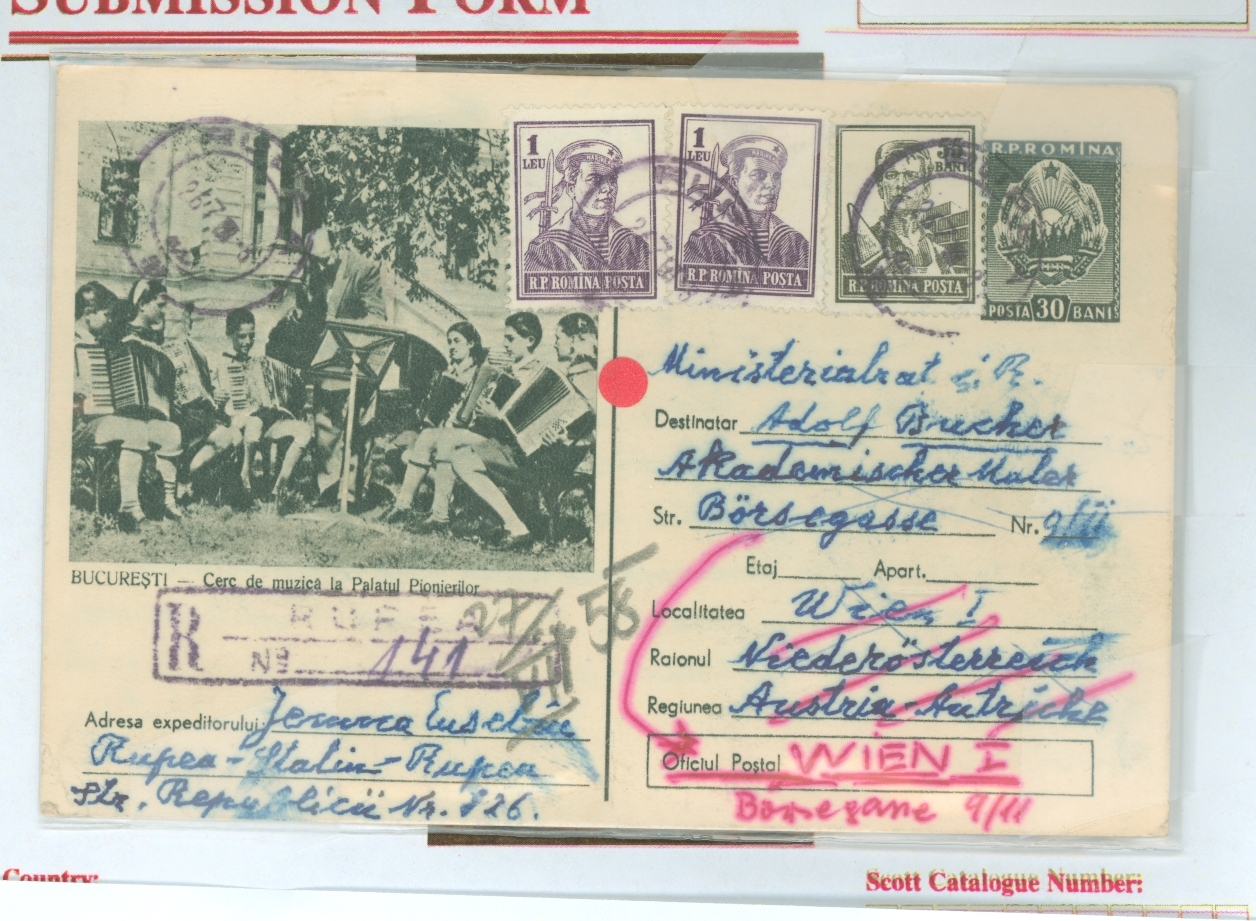 SUBMISSION FORM
1
LEU
R.P. ROMÎNA POSTA
1
LEU
R.P. ROMÎNA POSTA
55
BANI
R.P. ROMÎNA POSTA
R.P. ROMÎNA
POSTA 30 BANI
Ministerialrat i. R.
Destinatar Adolf Bucher
Akademischer Maler
Str. Börsegasse Nr. 9/11
Etaj Apart.
Localitatea Wien I
Raionul Niederösterreich
Regiunea Austria-Autriche
Oficiul Poştal WIEN I
Börsegasse 9/11
BUCUREŞTI — Cerc de muzică la Palatul Pionierilor
R RUPEA
Nº 141
27/VII 58
Adresa expeditorului
Rupea-Stalin-Rupea
Str. Republicii Nr. 126.
Country:
Scott Catalogue Number: